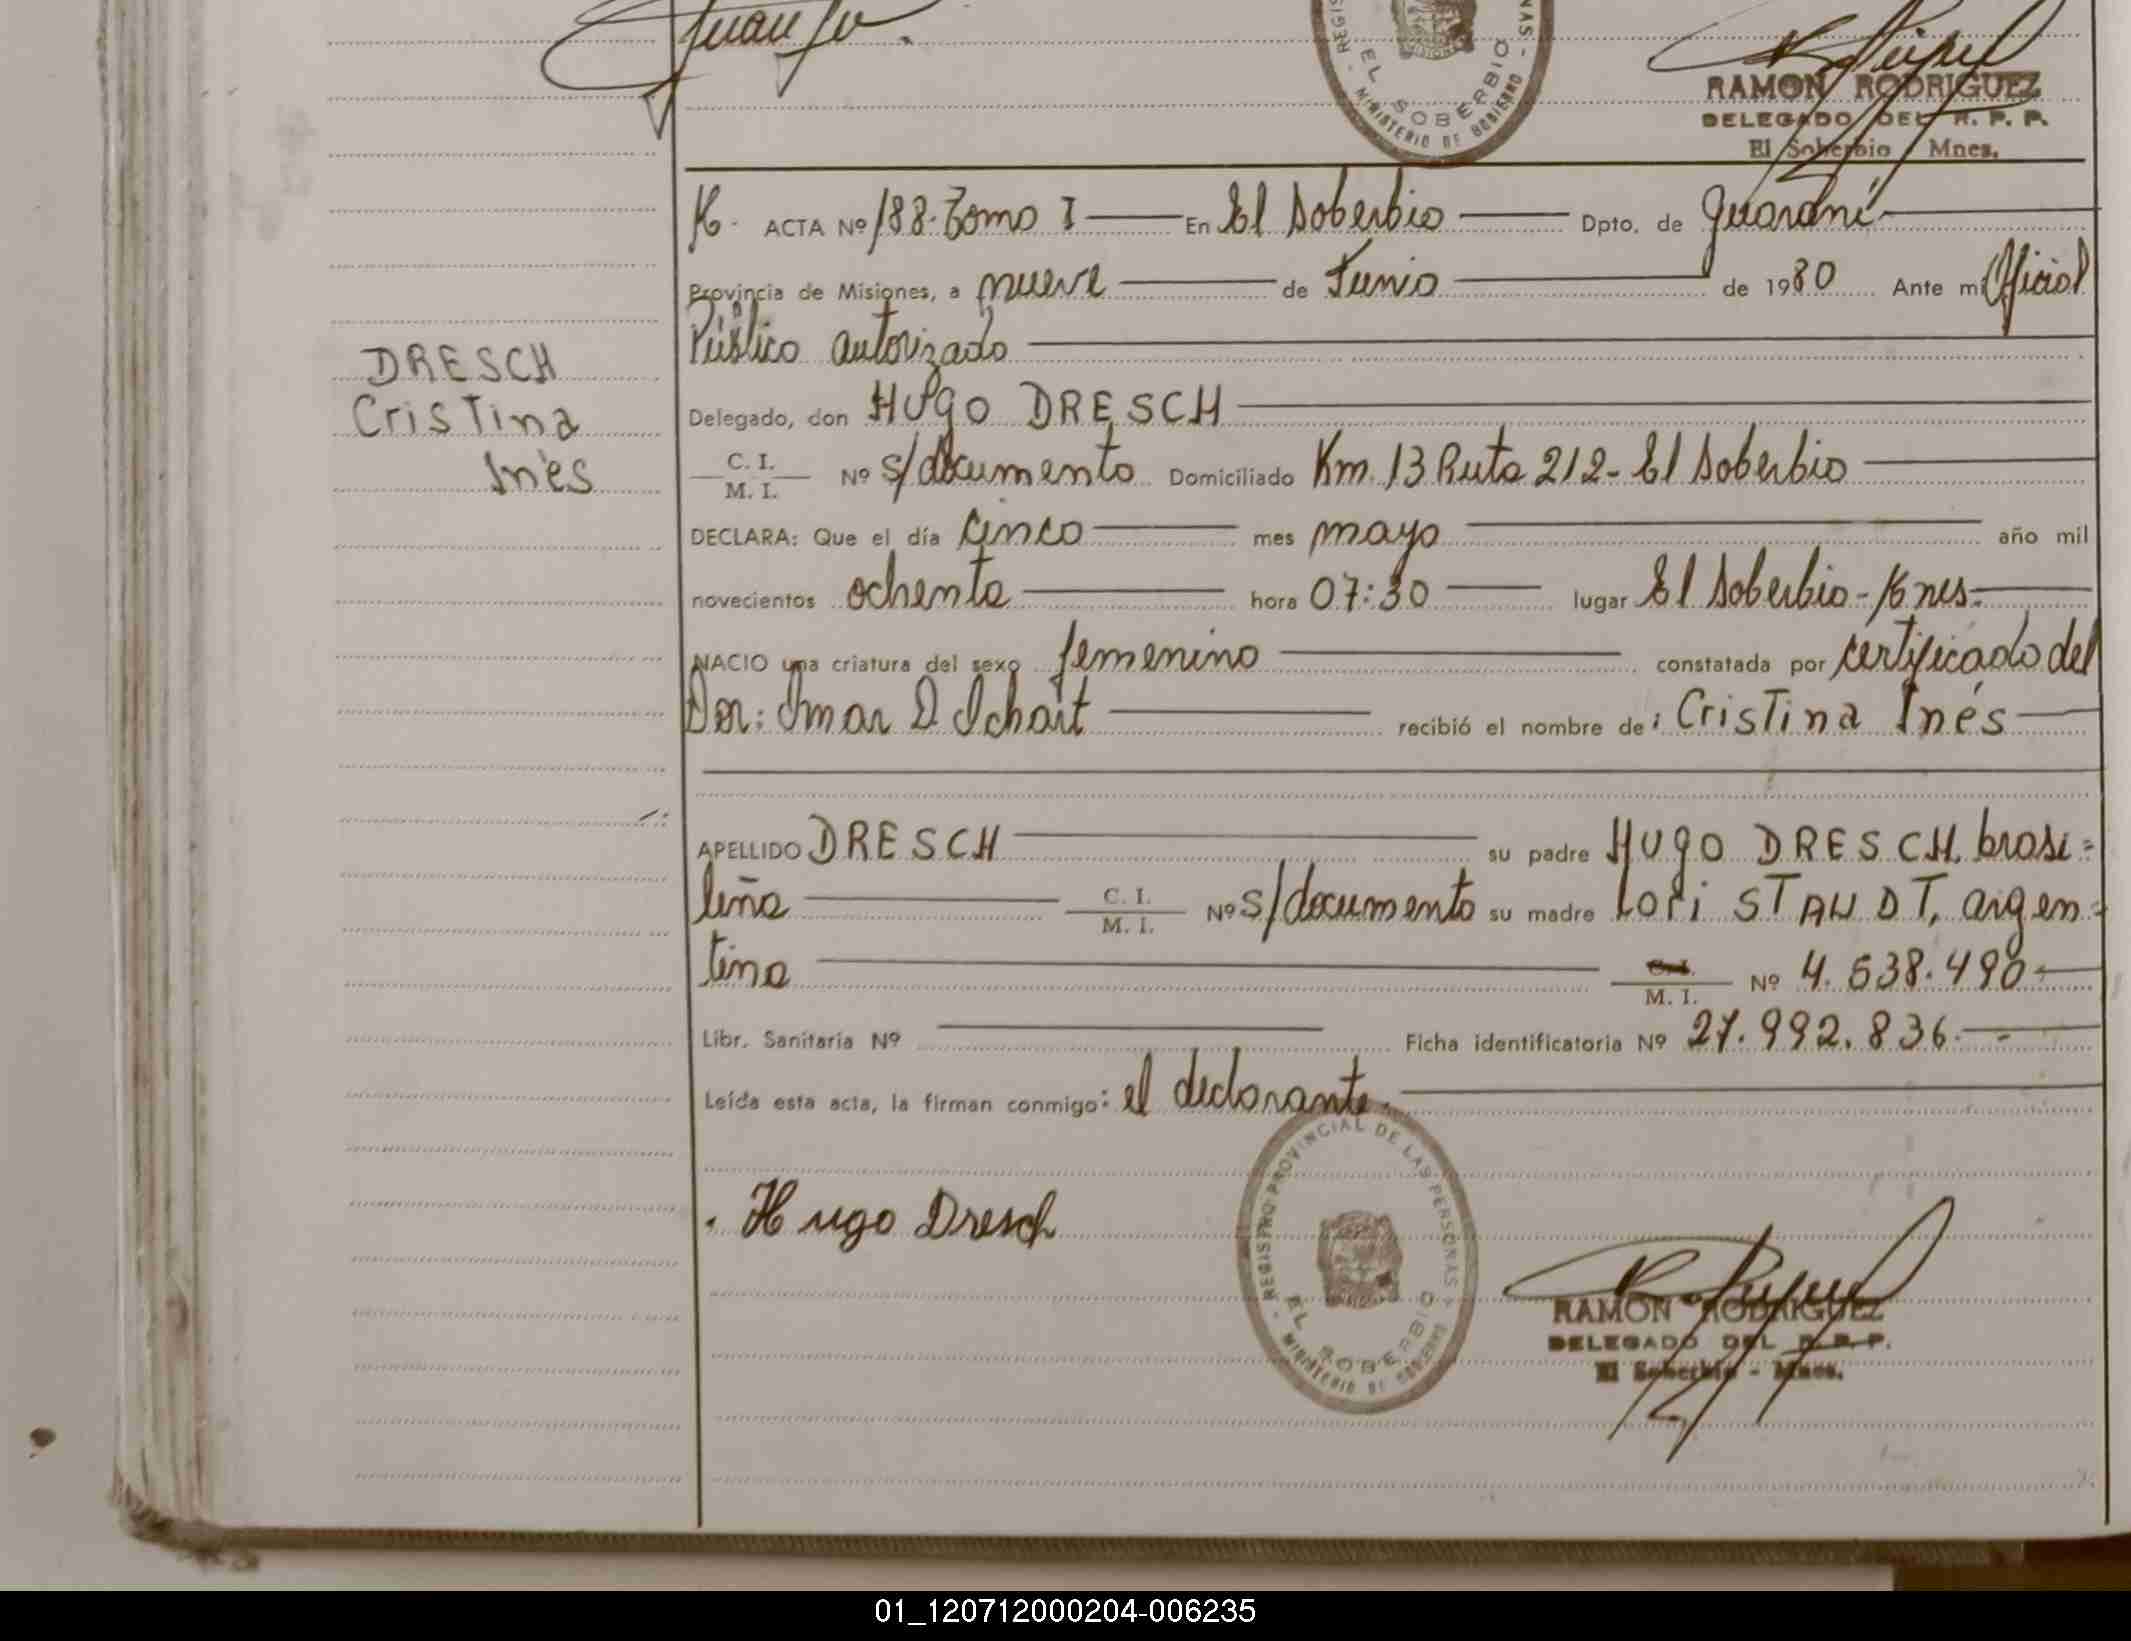 Juan Jo
REGIS NAS - EL SOBERBIO - MINISTERIO DE GOBIERNO
RAMON RODRIGUEZ
DELEGADO DEL R. P. P.
El Soberbio / Mnes.
K. ACTA Nº 188. Tomo I En El Soberbio Dpto. de Guaraní
Provincia de Misiones, a nueve de Junio de 1980 Ante mi Oficial
Público autorizado
Delegado, don Hugo DRESCH
C. I.
M. I. Nº s/documento Domiciliado Km. 13 Ruta 212- El Soberbio
DRESCH
Cristina
Inés
DECLARA: Que el día cinco mes mayo año mil
novecientos ochenta hora 07:30 lugar El Soberbio - Mnes.
NACIO una criatura del sexo femenino constatada por certificado del
Dor: Omar D. Ichart recibió el nombre de: Cristina Inés
APELLIDO DRESCH su padre Hugo DRESCH, brasi=
leña C. I. M. I. Nº s/documento su madre Lori STAUDT, argen=
tina C. I. M. I. Nº 4.538.490
Libr. Sanitaria Nº Ficha identificatoria Nº 27.992.836. -
Leída esta acta, la firman conmigo: el declarante.
Hugo Dresch
REGISTRO PROVINCIAL DE LAS PERSONAS - EL SOBERBIO - MINISTERIO DE GOBIERNO
RAMON RODRIGUEZ
DELEGADO DEL R. P. P.
El Soberbio - Mnes.
01_120712000204-006235